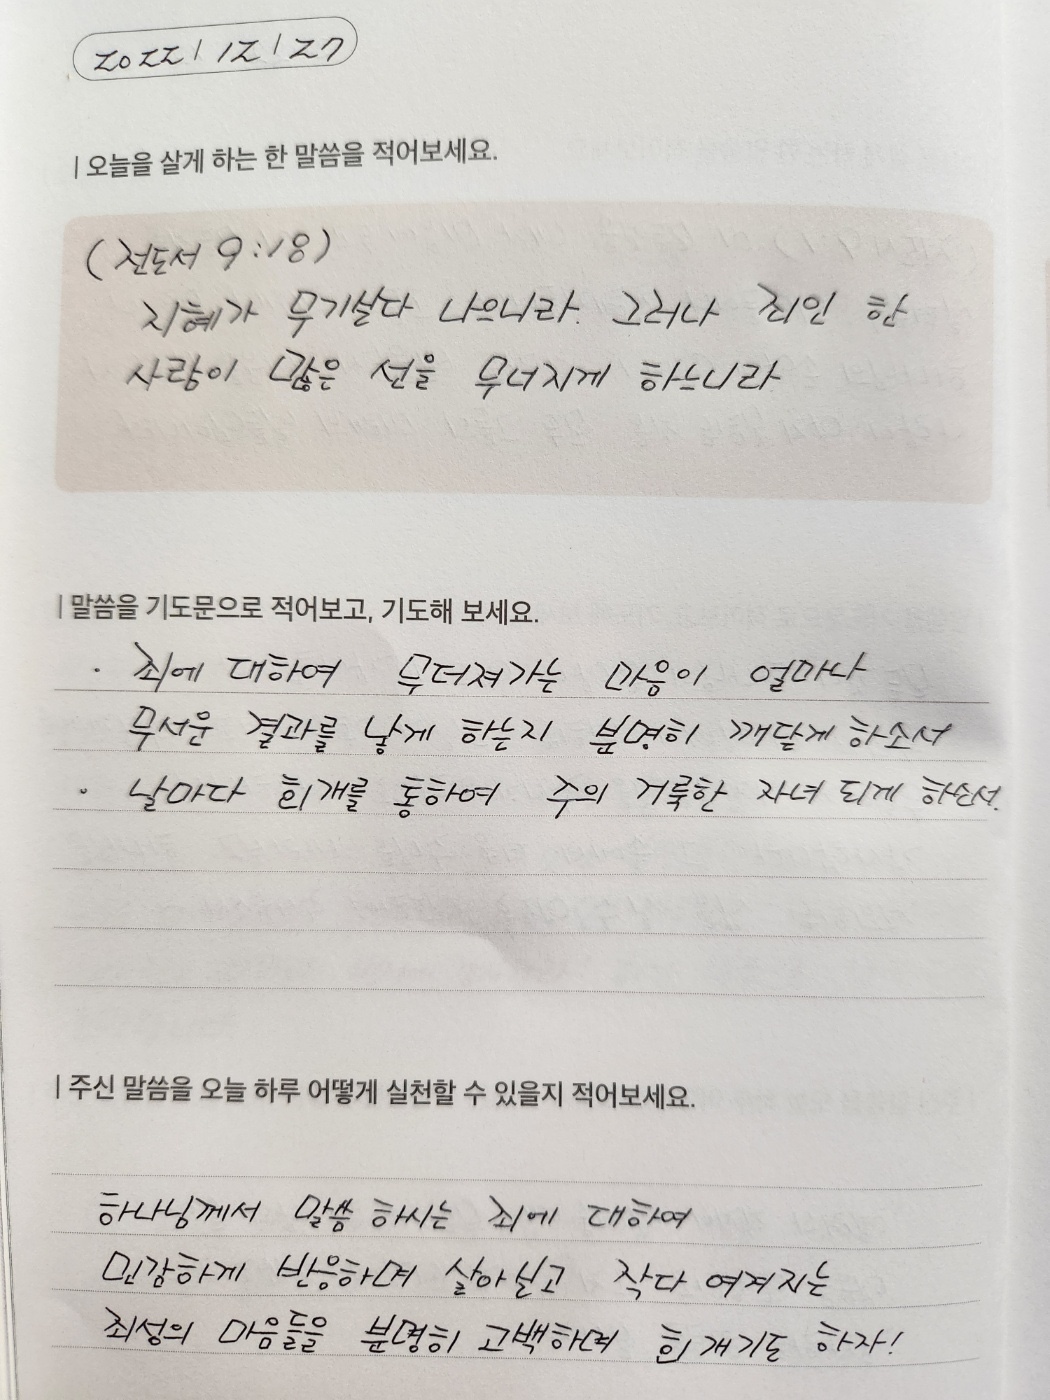 2022/12/27
오늘을 살게 하는 한 말씀을 적어보세요.
(전도서 9:18)
지혜가 무기보다 나으니라. 그러나 죄인 한
사람이 많은 선을 무너지게 하느니라
말씀을 기도문으로 적어보고, 기도해 보세요.
· 죄에 대하여 무뎌져가는 마음이 얼마나
무서운 결과를 낳게 하는지 분명히 깨닫게 하소서
· 날마다 회개를 통하여 주의 거룩한 자녀 되게 하소서.
주신 말씀을 오늘 하루 어떻게 실천할 수 있을지 적어보세요.
하나님께서 말씀 하시는 죄에 대하여
민감하게 반응하며 살아내고 작다 여겨지는
죄성의 마음들을 분명히 고백하며 회개기도 하자!